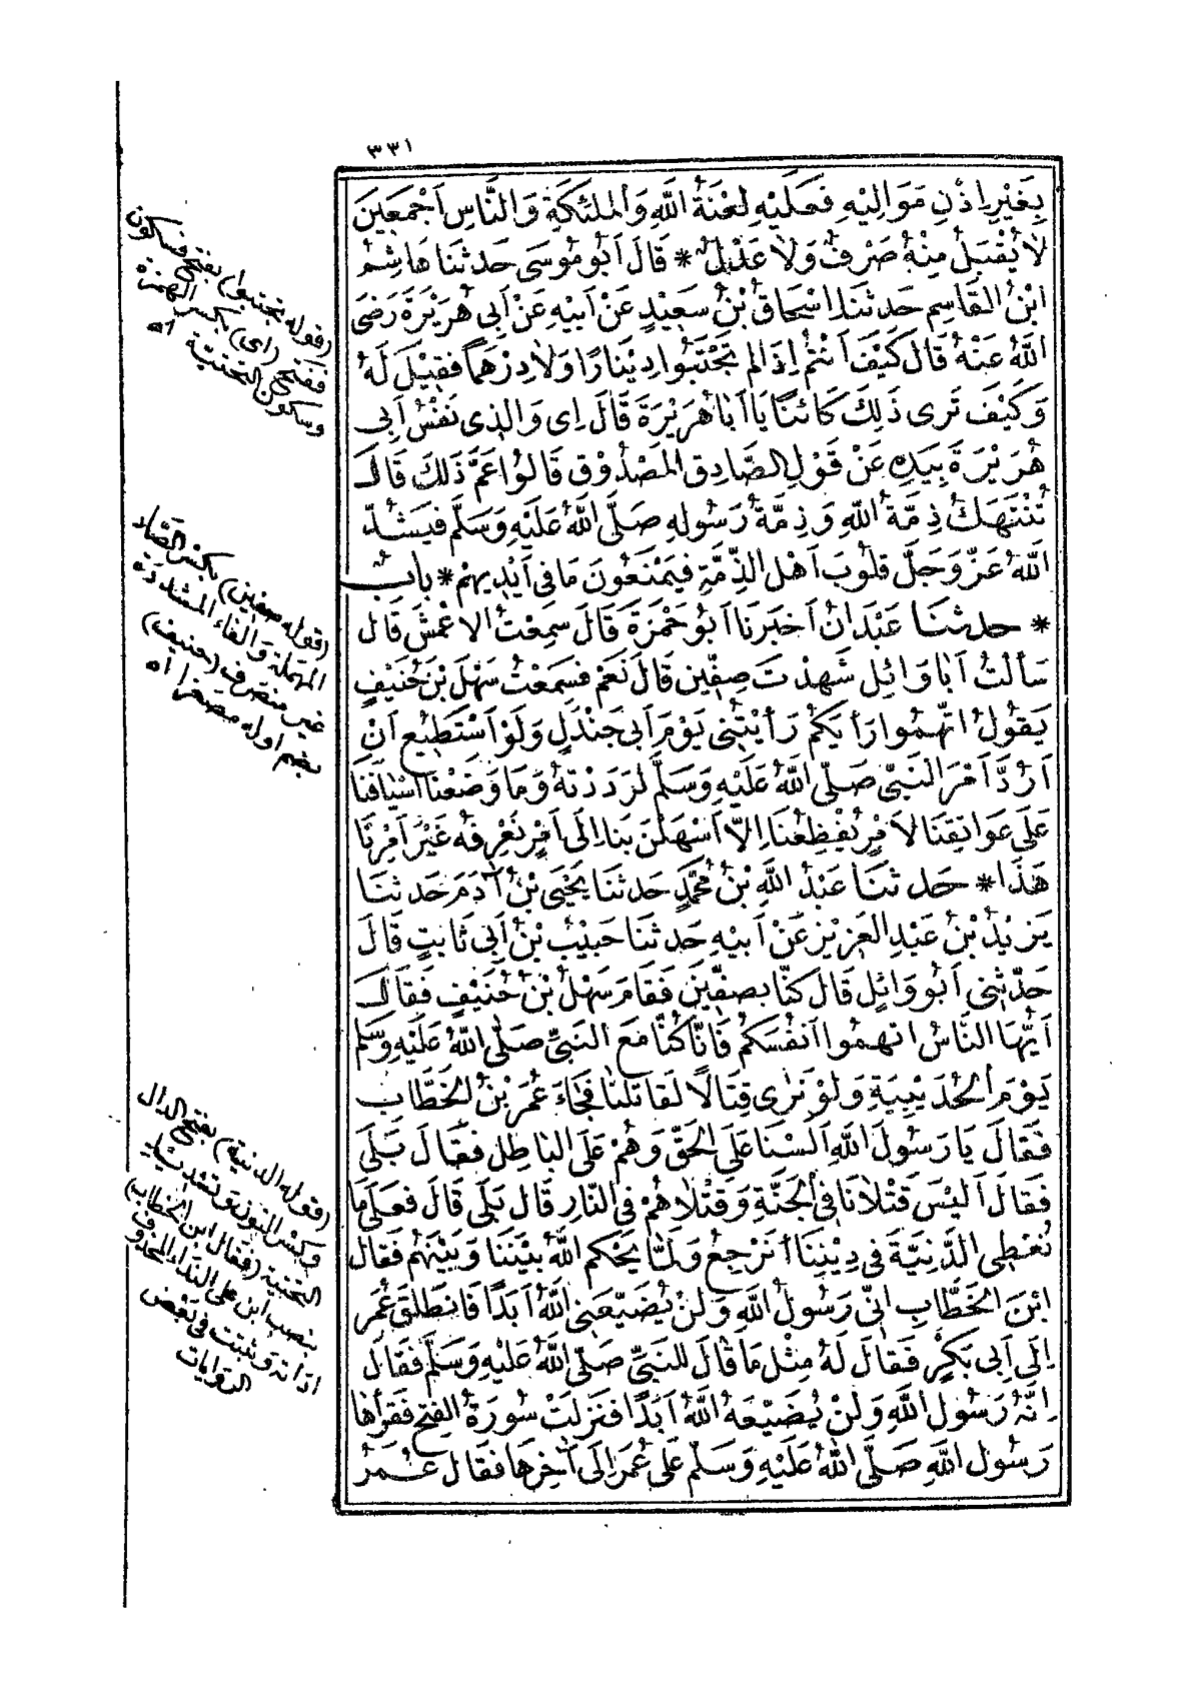 ٣٣١
بِغَيْرِ اِذْنِ مَوَالِيْهِ فَعَلَيْهِ لَعْنَةُ اللَّهِ وَالْمَلٰئِكَةِ وَالنَّاسِ اَجْمَعِينَ
لَا يُقْبَلُ مِنْهُ صَرْفٌ وَلَا عَدْلٌ * قَالَ اَبُو مُوسَى حَدثنَا هَاشِمُ
ابْنُ القَاسِم حَدثنَا اِسْحَاقُ بْنُ سَعِيْدٍ عَنْ اَبِيْهِ عَنْ اَبِى هُرَيْرَةَ رَضِىَ
اللَّهُ عَنْهُ قَالَ كَيْفَ اَنْتُمْ اِذَا لم تَجْتَبُوا دِيْنَارًا وَلَا دِرْهَمًا فَقِيْلَ لَهُ
وَكَيْفَ تَرى ذَلِكَ كَائنًا يَا اَبَا هُرَيْرَةَ قَالَ اِى وَالذِى نَفْسُ اَبِى
هُرَيْرَةَ بِيَدِهِ عَنْ قَوْلِ الصَّادِقِ المَصْدُوْقِ قَالُوا عَمَّ ذَلِكَ قَالَ
تُنْتَهَكُ ذِمَّةُ اللَّهِ وَذِمَّةُ رَسُولِهِ صَلَّى اللَّهُ عَلَيْهِ وَسَلَّم فَيَشُدُّ
اللَّهُ عَزَّ وَجَلَّ قلُوْبَ اَهْلِ الذِّمَّةِ فَيَمْنَعُونَ مَا فى اَيْدِيهِمْ * بابٌ
* حدثنَا عَبْدَانُ اَخبَرَنَا اَبُو حَمْزَةَ قَالَ سَمِعْتُ الاعْمَشَ قَال
سَألْتُ اَبَا وَائِلٍ شَهِدْتَ صِفِّين قَالَ نَعَمْ فَسَمِعْتُ سَهْلَ بْنَ حُنَيْفٍ
يَقُولُ اتَّهِمُوا رَأيَكُمْ رَأيْتُنِى يَوْمَ اَبى جَنْدَلٍ وَلَوْ اَسْتَطِيْع اَنْ
اَرُدَّ اَمْرَ النَّبِىّ صَلَّى اللَّهُ عَلَيْهِ وَسَلَّمَ لَرَدَدْتُهُ وَمَا وَضَعْنَا اَسْيَافَنَا
عَلَى عَوَاتِقِنَا لاَمْرٍ يُفْظِعُنَا اِلَّا اَسْهَلْنَ بنَا اِلَى اَمْرٍ نَعْرِفُهُ غَيْرَ اَمْرِنَا
هَذَا * حَدثنَا عَبْدُ اللَّهِ بْنُ مُحَمَّدٍ حَدثنَا يَحْيَى بْنُ آدَمَ حَدثنَا
يَزِيْدُ بْنُ عَبْدِ العَزِيْزِ عَنْ اَبِيْهِ حَدثنَا حَبِيْبُ بْنُ اَبِى ثَابِتٍ قَالَ
حَدّثنِى اَبُو وَائِلٍ قَالَ كنّا بِصِفِّينَ فَقَامَ سَهْلُ بْنُ حُنَيْفٍ فَقَالَ
اَيُّهَا النَّاسُ اتهِمُوا اَنْفُسَكمْ فَاِنَّا كُنَّا مَعَ النَّبِىِّ صَلَّى اللَّهُ عَلَيْهِ وَسَلَّم
يَوْمَ الحُدَيْبِيَةِ وَلَوْ نَرٰى قِتَالًا لَقَاتَلْنَا فَجَاءَ عُمَرُ بْنُ الخَطَّابِ
فَقَالَ يَا رَسُولَ اللَّهِ اَلَسْنَا عَلَى الحَقِّ وَهُمْ عَلَى البَاطِل فَقَالَ بَلَى
فَقَالَ اَلَيْسَ قَتْلَانَا فِى الجَنَّةِ وَقَتْلَاهُمْ فِى النَّارِ قَالَ بَلَى قَالَ فعَلَى مَا
نُعْطِى الدَّنِيَّةَ فِى دِيْنِنَا اَنَرْجِعُ وَلَمَّا يَحْكمِ اللَّهُ بَيْنَنَا وَبَيْنَهُمْ فَقَالَ
ابْنَ الخَطَّابِ اِنِّى رَسُولُ اللَّهِ وَلَنْ يُضَيِّعَنِى اللَّهُ اَبَدًا فَانْطَلَقَ عُمَر
اِلَى اَبِى بَكْرٍ فَقَالَ لَهُ مِثْلَ مَا قَالَ للنَبِىِّ صَلّى اللَّهُ عَلَيْهِ وَسَلَّمَ فَقَالَ
اِنَّهُ رَسُولُ اللَّهِ وَلَنْ يُضَيِّعَهُ اللَّهُ اَبَدًا فَنَزلَتْ سُورَةُ الفَتْح فَقَرَأهَا
رَسُولُ اللَّهِ صَلَّى اللَّهُ عَلَيْهِ وَسَلَّم عَلَى عُمَرَ اِلَى آخِرِهَا فَقَالَ عُمَرُ
(قوله تجتبوا) بفتح فسكون
ففتح (اى) بكسر الهمزة
وسكون التحتيّة اه
(قوله صفين) بكسْر الصَّاد
المهمَلة وَالفاء المشددَة
غير منصرف (حنيف)
بضم اوله مصغرا اه
(قوله الدنية) بفتح الدال
وَكسْر النون وَتشديد
التحتية (فقال ابن الخطاب)
بنصب ابن على النداء المحذوف
اداته وَثبتت فى بَعْض
الروايات